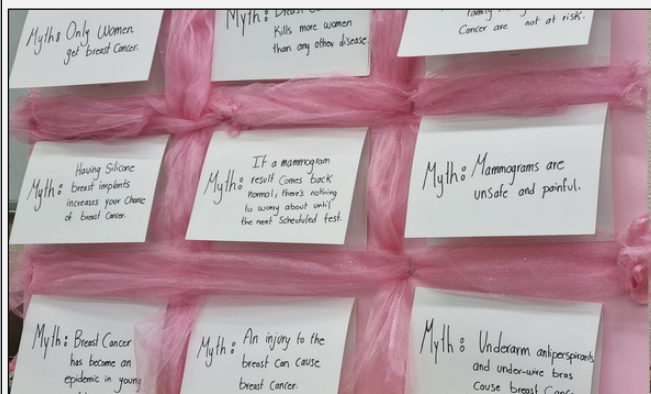 Myth: Only Women
get breast Cancer.
Myth: Breast Ca
Kills more women
than any other disease.
Family
Cancer are not at risk.
Having Silicone
Myth: breast implants
increases your chance
of breast Cancer.
If a mammogram
Myth: result Comes back
normal, there's nothing
to worry about until
the next Scheduled test.
Myth: Mammograms are
unsafe and painful.
Myth: Breast Cancer
has become an
epidemic in young
Myth: An injury to the
breast can cause
breast cancer.
Myth: Underarm antiperspirants
and under-wire bras
Cause breast Cance